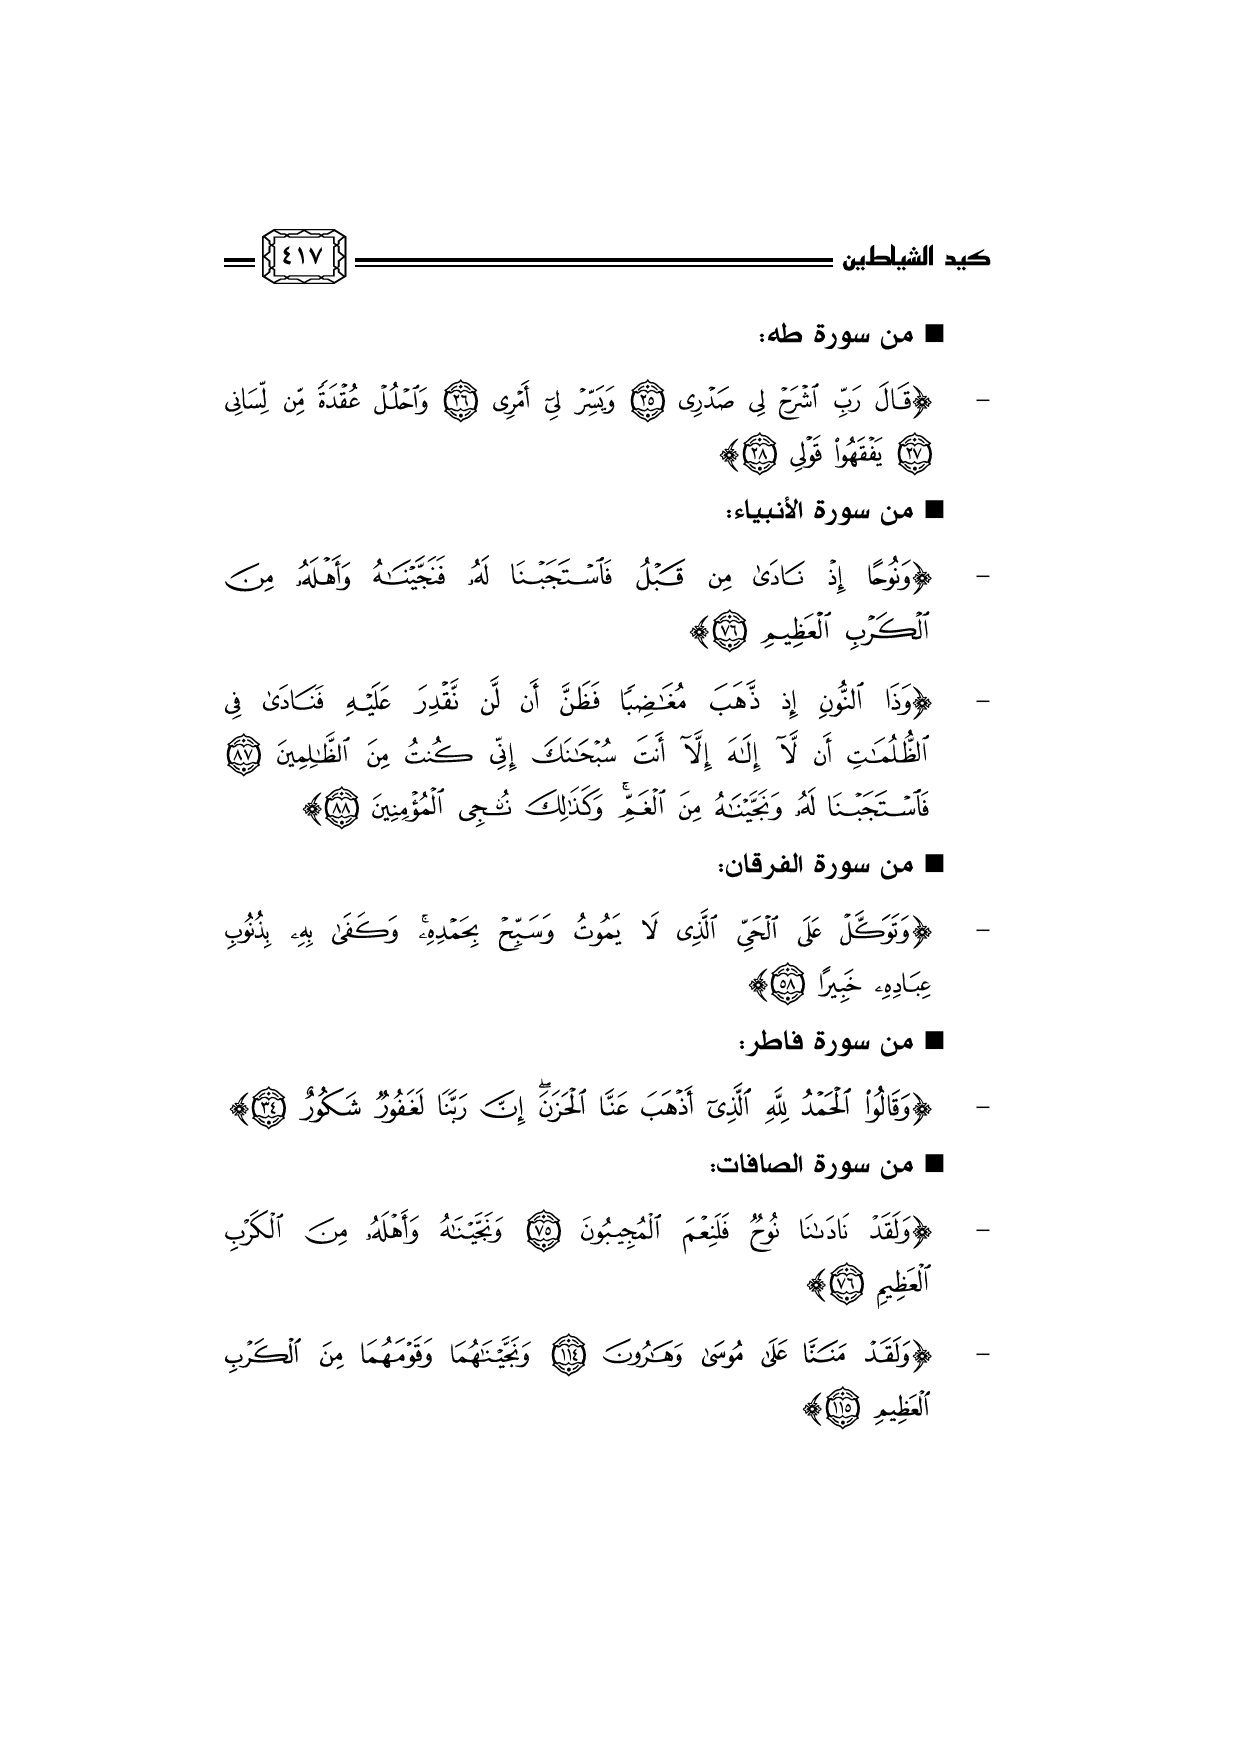 كيد الشياطين ٤١٧
■ من سورة طه:
- ﴿قَالَ رَبِّ ٱشْرَحْ لِى صَدْرِى ٢٥ وَيَسِّرْ لِىٓ أَمْرِى ٢٦ وَٱحْلُلْ عُقْدَةً مِّن لِّسَانِى
٢٧ يَفْقَهُوا۟ قَوْلِى ٢٨﴾
■ من سورة الأنبياء:
- ﴿وَنُوحًا إِذْ نَادَىٰ مِن قَبْلُ فَٱسْتَجَبْنَا لَهُۥ فَنَجَّيْنَـٰهُ وَأَهْلَهُۥ مِنَ
ٱلْكَرْبِ ٱلْعَظِيمِ ٧٦﴾
- ﴿وَذَا ٱلنُّونِ إِذ ذَّهَبَ مُغَـٰضِبًا فَظَنَّ أَن لَّن نَّقْدِرَ عَلَيْهِ فَنَادَىٰ فِى
ٱلظُّلُمَـٰتِ أَن لَّآ إِلَـٰهَ إِلَّآ أَنتَ سُبْحَـٰنَكَ إِنِّى كُنتُ مِنَ ٱلظَّـٰلِمِينَ ٨٧
فَٱسْتَجَبْنَا لَهُۥ وَنَجَّيْنَـٰهُ مِنَ ٱلْغَمِّ ۚ وَكَذَٰلِكَ نُـۨجِى ٱلْمُؤْمِنِينَ ٨٨﴾
■ من سورة الفرقان:
- ﴿وَتَوَكَّلْ عَلَى ٱلْحَىِّ ٱلَّذِى لَا يَمُوتُ وَسَبِّحْ بِحَمْدِهِۦ ۚ وَكَفَىٰ بِهِۦ بِذُنُوبِ
عِبَادِهِۦ خَبِيرًا ٥٨﴾
■ من سورة فاطر:
- ﴿وَقَالُوا۟ ٱلْحَمْدُ لِلَّهِ ٱلَّذِىٓ أَذْهَبَ عَنَّا ٱلْحَزَنَ ۖ إِنَّ رَبَّنَا لَغَفُورٌ شَكُورٌ ٣٤﴾
■ من سورة الصافات:
- ﴿وَلَقَدْ نَادَىٰنَا نُوحٌ فَلَنِعْمَ ٱلْمُجِيبُونَ ٧٥ وَنَجَّيْنَـٰهُ وَأَهْلَهُۥ مِنَ ٱلْكَرْبِ
ٱلْعَظِيمِ ٧٦﴾
- ﴿وَلَقَدْ مَنَنَّا عَلَىٰ مُوسَىٰ وَهَـٰرُونَ ١١٤ وَنَجَّيْنَـٰهُمَا وَقَوْمَهُمَا مِنَ ٱلْكَرْبِ
ٱلْعَظِيمِ ١١٥﴾